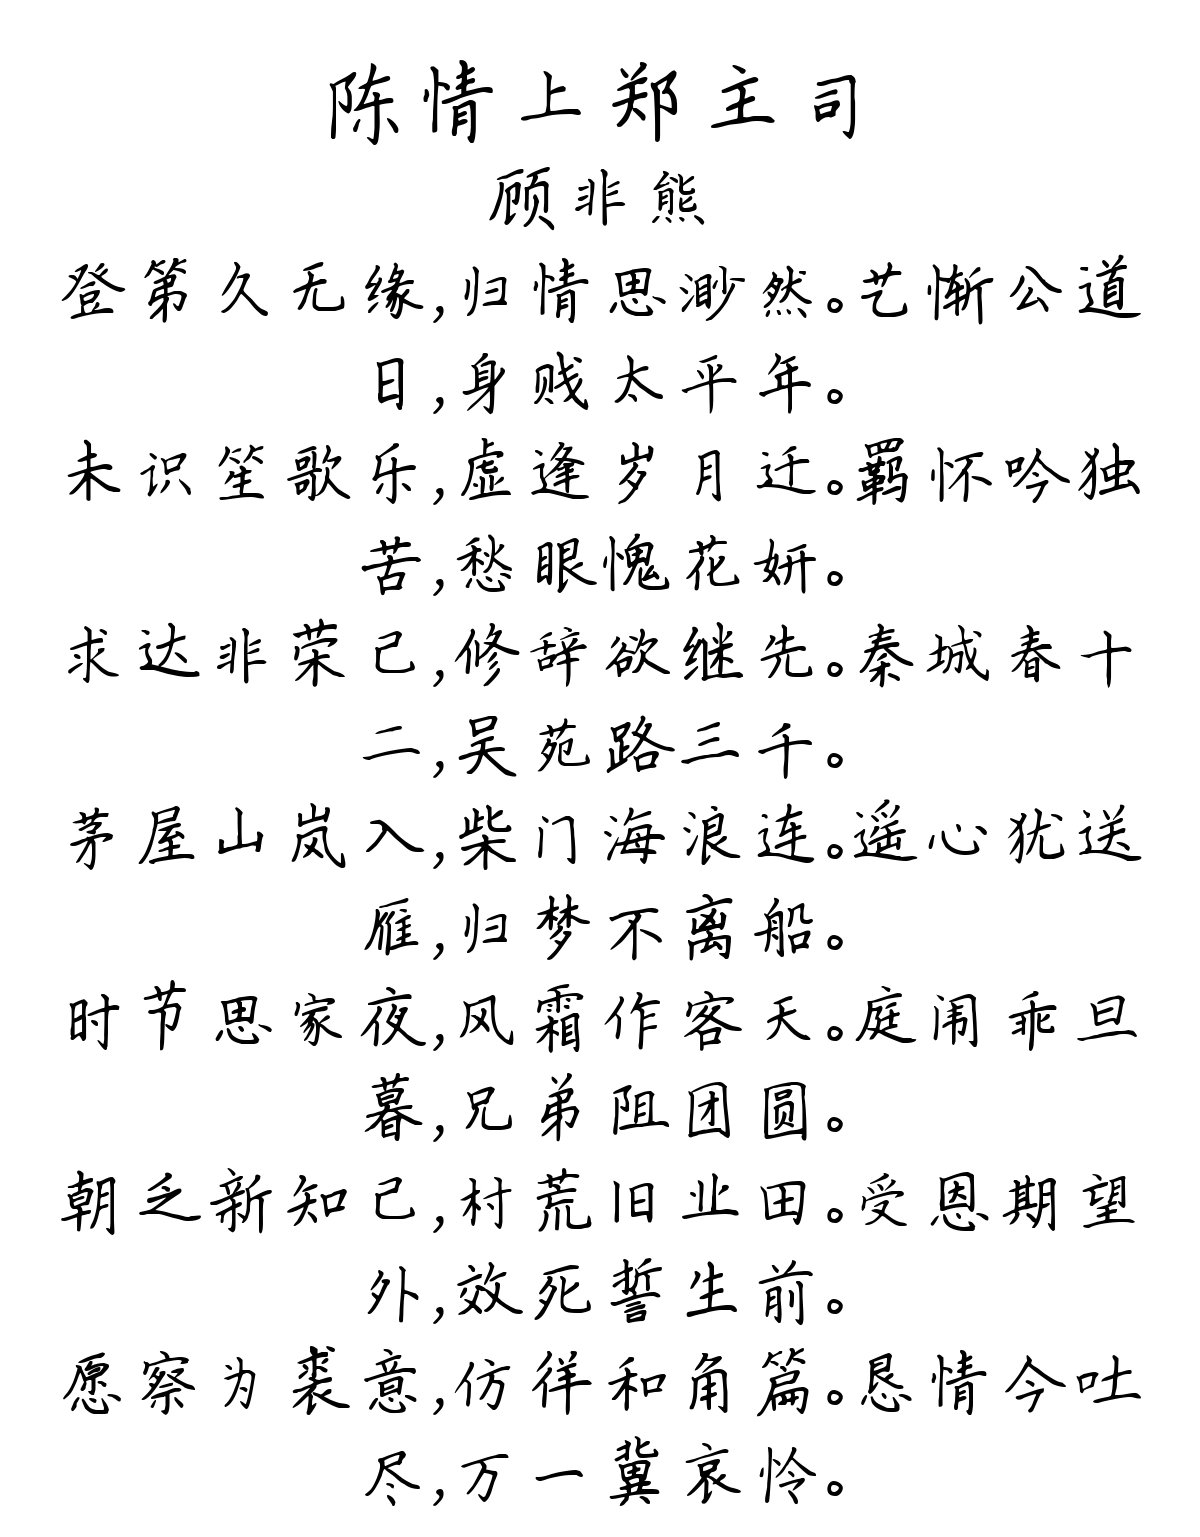 陈情上郑主司
顾非熊
登第久无缘,归情思渺然。艺惭公道
日,身贱太平年。
未识笙歌乐,虚逢岁月迁。羁怀吟独
苦,愁眼愧花妍。
求达非荣己,修辞欲继先。秦城春十
二,吴苑路三千。
茅屋山岚入,柴门海浪连。遥心犹送
雁,归梦不离船。
时节思家夜,风霜作客天。庭闱乖旦
暮,兄弟阻团圆。
朝乏新知己,村荒旧业田。受恩期望
外,效死誓生前。
愿察为裘意,仿徉和角篇。恳情今吐
尽,万一冀哀怜。